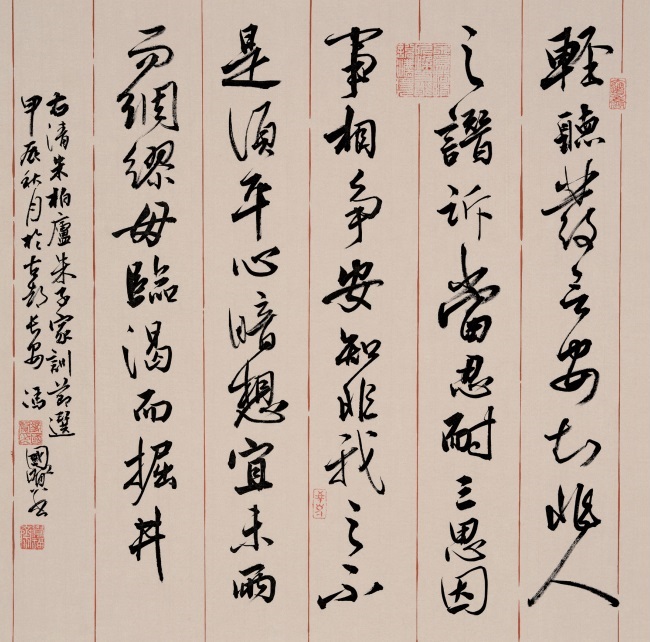 輕聽發言安知非人
之譖訴當忍耐三思因
事相爭安知非我之不
是須平心暗想宜未雨
而綢繆毋臨渴而掘井
右清朱柏廬朱子家訓節選
甲辰秋月於古都長安馮
國賢書